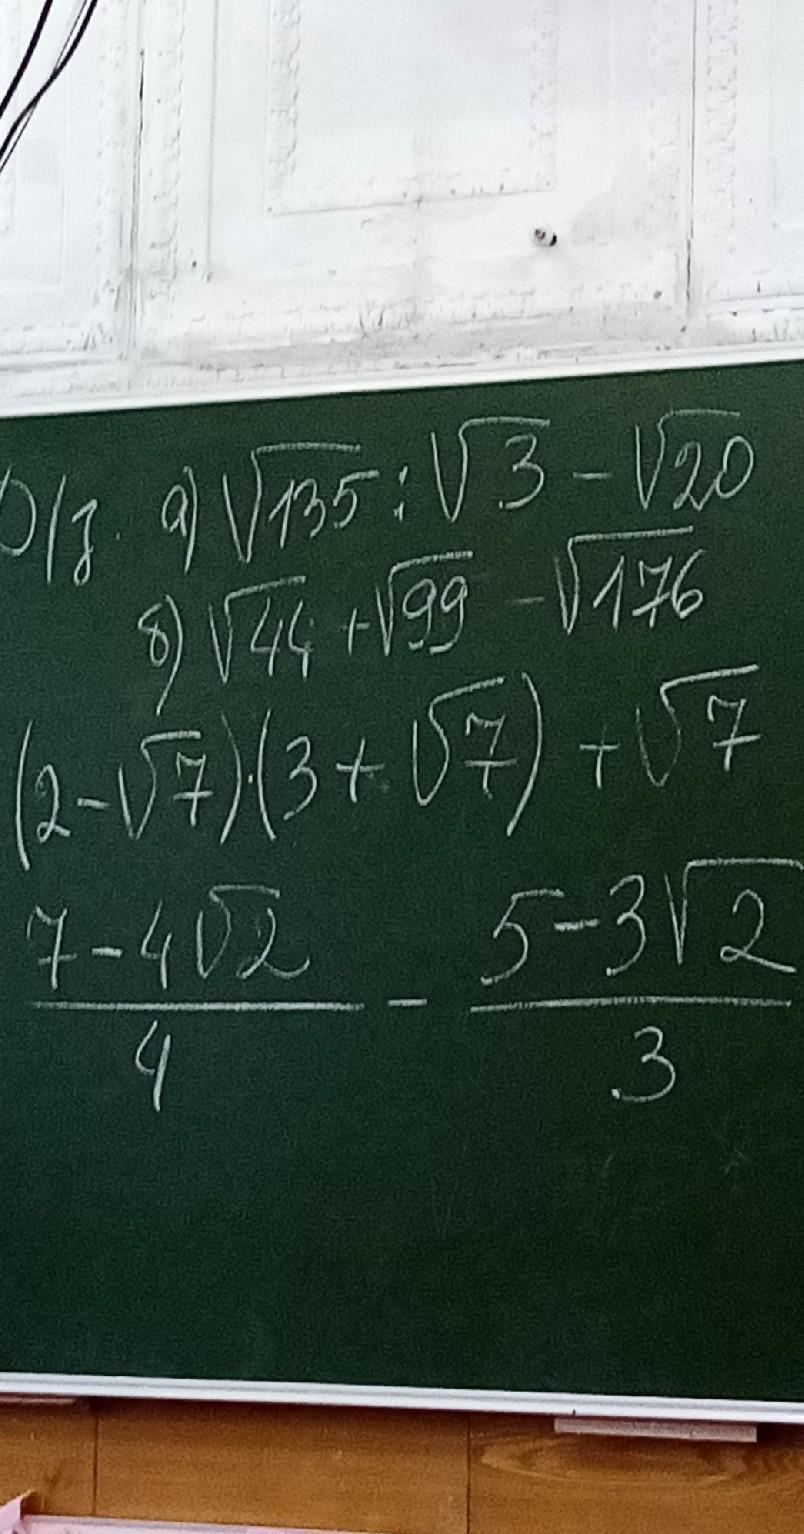 D/з. а) √135 : √3 - √20
б) √44 + √99 - √176
(2-√7)·(3+√7) + √7
7-4√2 / 4 - 5-3√2 / 3